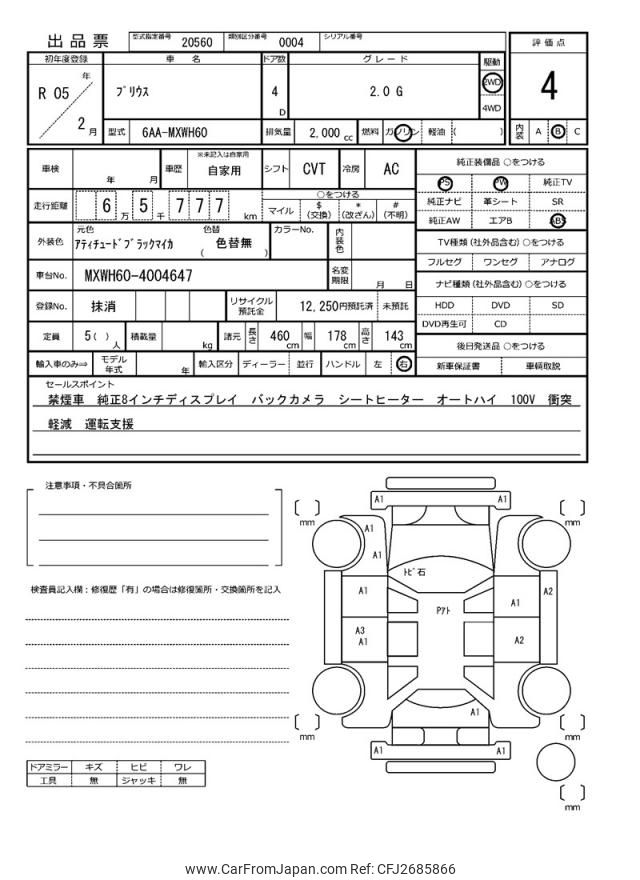 出品票
型式指定番号 20560 類別区分番号 0004 シリアル番号
評価点
4
初年度登録 車名 ドア数 グレード 駆動
R 05 年 2 月
プリウス 4 D 2.0 G 2WD 4WD
型式 6AA-MXWH60 排気量 2,000 cc 燃料 ガソリン 軽油 ( )
内装 A B C
車検 年 月 車歴 ※未記入は自家用 自家用 シフト CVT 冷房 AC
走行距離 6 万 5 千 7 7 7 km
○をつける
マイル $ (交換) * (改ざん) # (不明)
外装色 元色 アティチュードブラックマイカ 色替 ( 色替無 ) カラーNo. 内装色
車台No. MXWH60-4004647 名変期限 月 日
登録No. 抹消 リサイクル預託金 12,250円預託済 未預託
定員 5 ( ) 人 積載量 kg 諸元 長さ 460 cm 幅 178 cm 高さ 143 cm
輸入車のみ⇒ モデル年式 年 輸入区分 ディーラー 並行 ハンドル 左 右
純正装備品 ○をつける
PS PW 純正TV
純正ナビ 革シート SR
純正AW エアB ABS
TV種類 (社外品含む) ○をつける
フルセグ ワンセグ アナログ
ナビ種類 (社外品含む) ○をつける
HDD DVD SD
DVD再生可 CD
後日発送品 ○をつける
新車保証書 車輌取説
セールスポイント
禁煙車 純正8インチディスプレイ バックカメラ シートヒーター オートハイ 100V 衝突
軽減 運転支援
注意事項・不具合箇所
検査員記入欄:修復歴「有」の場合は修復箇所・交換箇所を記入
ドアミラー キズ ヒビ ワレ
工具 無 ジャッキ 無
A1 A1
mm mm
A1
A1
トビ石
A1 Pアト A1 A2
A3
A1 A2
A1
mm A1 A1 mm
mm
www.CarFromJapan.com Ref: CFJ2685866